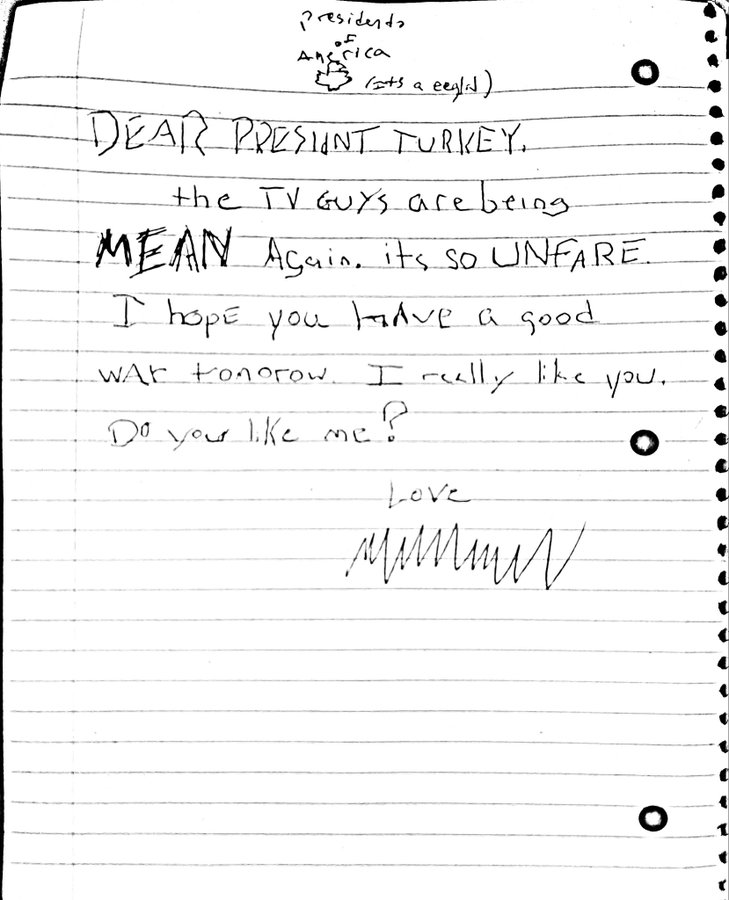 presidents
of
America
(its a eegld)
DEAR PRESIdNT TURKEY.
the TV GUYS are being
MEAN Again. its so UNFARE.
I hopE you HAVE a good
WAr tonorow. I really like you.
Do you like me?
Love